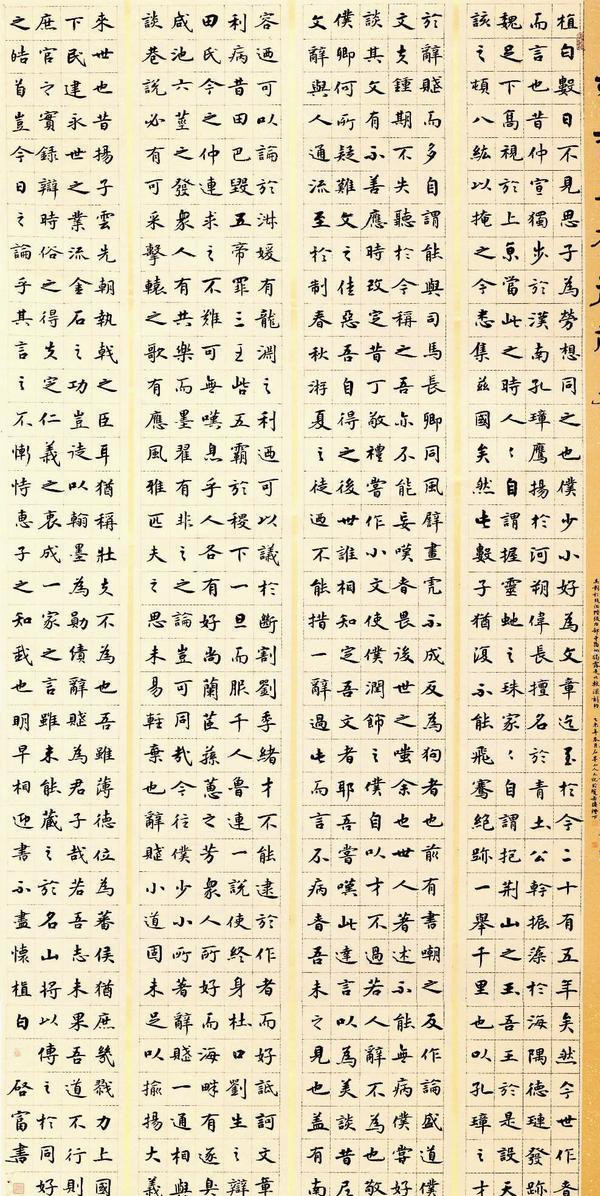 植白數日不見思子為勞想同之也僕少小好為文章迄至於今二十有五年矣然今世作者
而言也昔仲宣獨步於漢南孔璋鷹揚於河朔偉長擅名於青土公幹振藻於海隅德璉發跡
魏足下高視於上京當此之時人々自謂握靈蛇之珠家々自謂抱荊山之玉吾王於是設天
該之頓八紘以掩之今悉集茲國矣然此數子猶復不能飛騫絕跡一舉千里也以孔璋之才
於辭賦而多自謂能與司馬長卿同風譬畫虎不成反為狗者也前有書嘲之反作論盛道僕
文夫鍾期不失聽於今稱之吾亦不能妄嘆者畏後世之嗤余也世人著述不能無病僕嘗好
談其文有不善應時改定昔丁敬禮嘗作小文使僕潤飾之僕自以才不過若人辭不為也敬
僕卿何所疑難文之佳惡吾自得之後世誰相知定吾文者耶吾嘗嘆此達言以為美談昔尼
文辭與人通流至於制春秋游夏之徒迺不能措一辭過此而言不病者吾未之見也蓋有南
容迺可以論於淑媛有龍淵之利迺可以議於斷割劉季緒才不能逮於作者而好詆訶文章
利病昔田巴毀五帝罪三王呰五霸於稷下一旦而服千人魯連一說使終身杜口劉生之辯
田氏今之仲連求之不難可無嘆息乎人各有好尚蘭茝蓀蕙之芳衆人所好而海畔有逐臭
咸池六莖之發衆人有共樂而墨翟有非之之論豈可同哉今往僕少小所著辭賦一通相與
談巷說必有可采擊轅之歌有應風雅匹夫之思未易輕棄也辭賦小道固未足以揄揚大義
來世也昔揚子雲先朝執戟之臣耳猶稱壯夫不為也吾雖薄德位為蕃侯猶庶幾戮力上國
下民建永世之業流金石之功豈徒以翰墨為勳績辭賦為君子哉若吾志未果吾道不行則
庶官之實錄辯時俗之得失定仁義之衷成一家之言雖未能藏之於名山將以傳之於同好
之皓首豈今日之論乎其言之不慚恃惠子之知我也明早相迎書不盡懷植白
啓富書